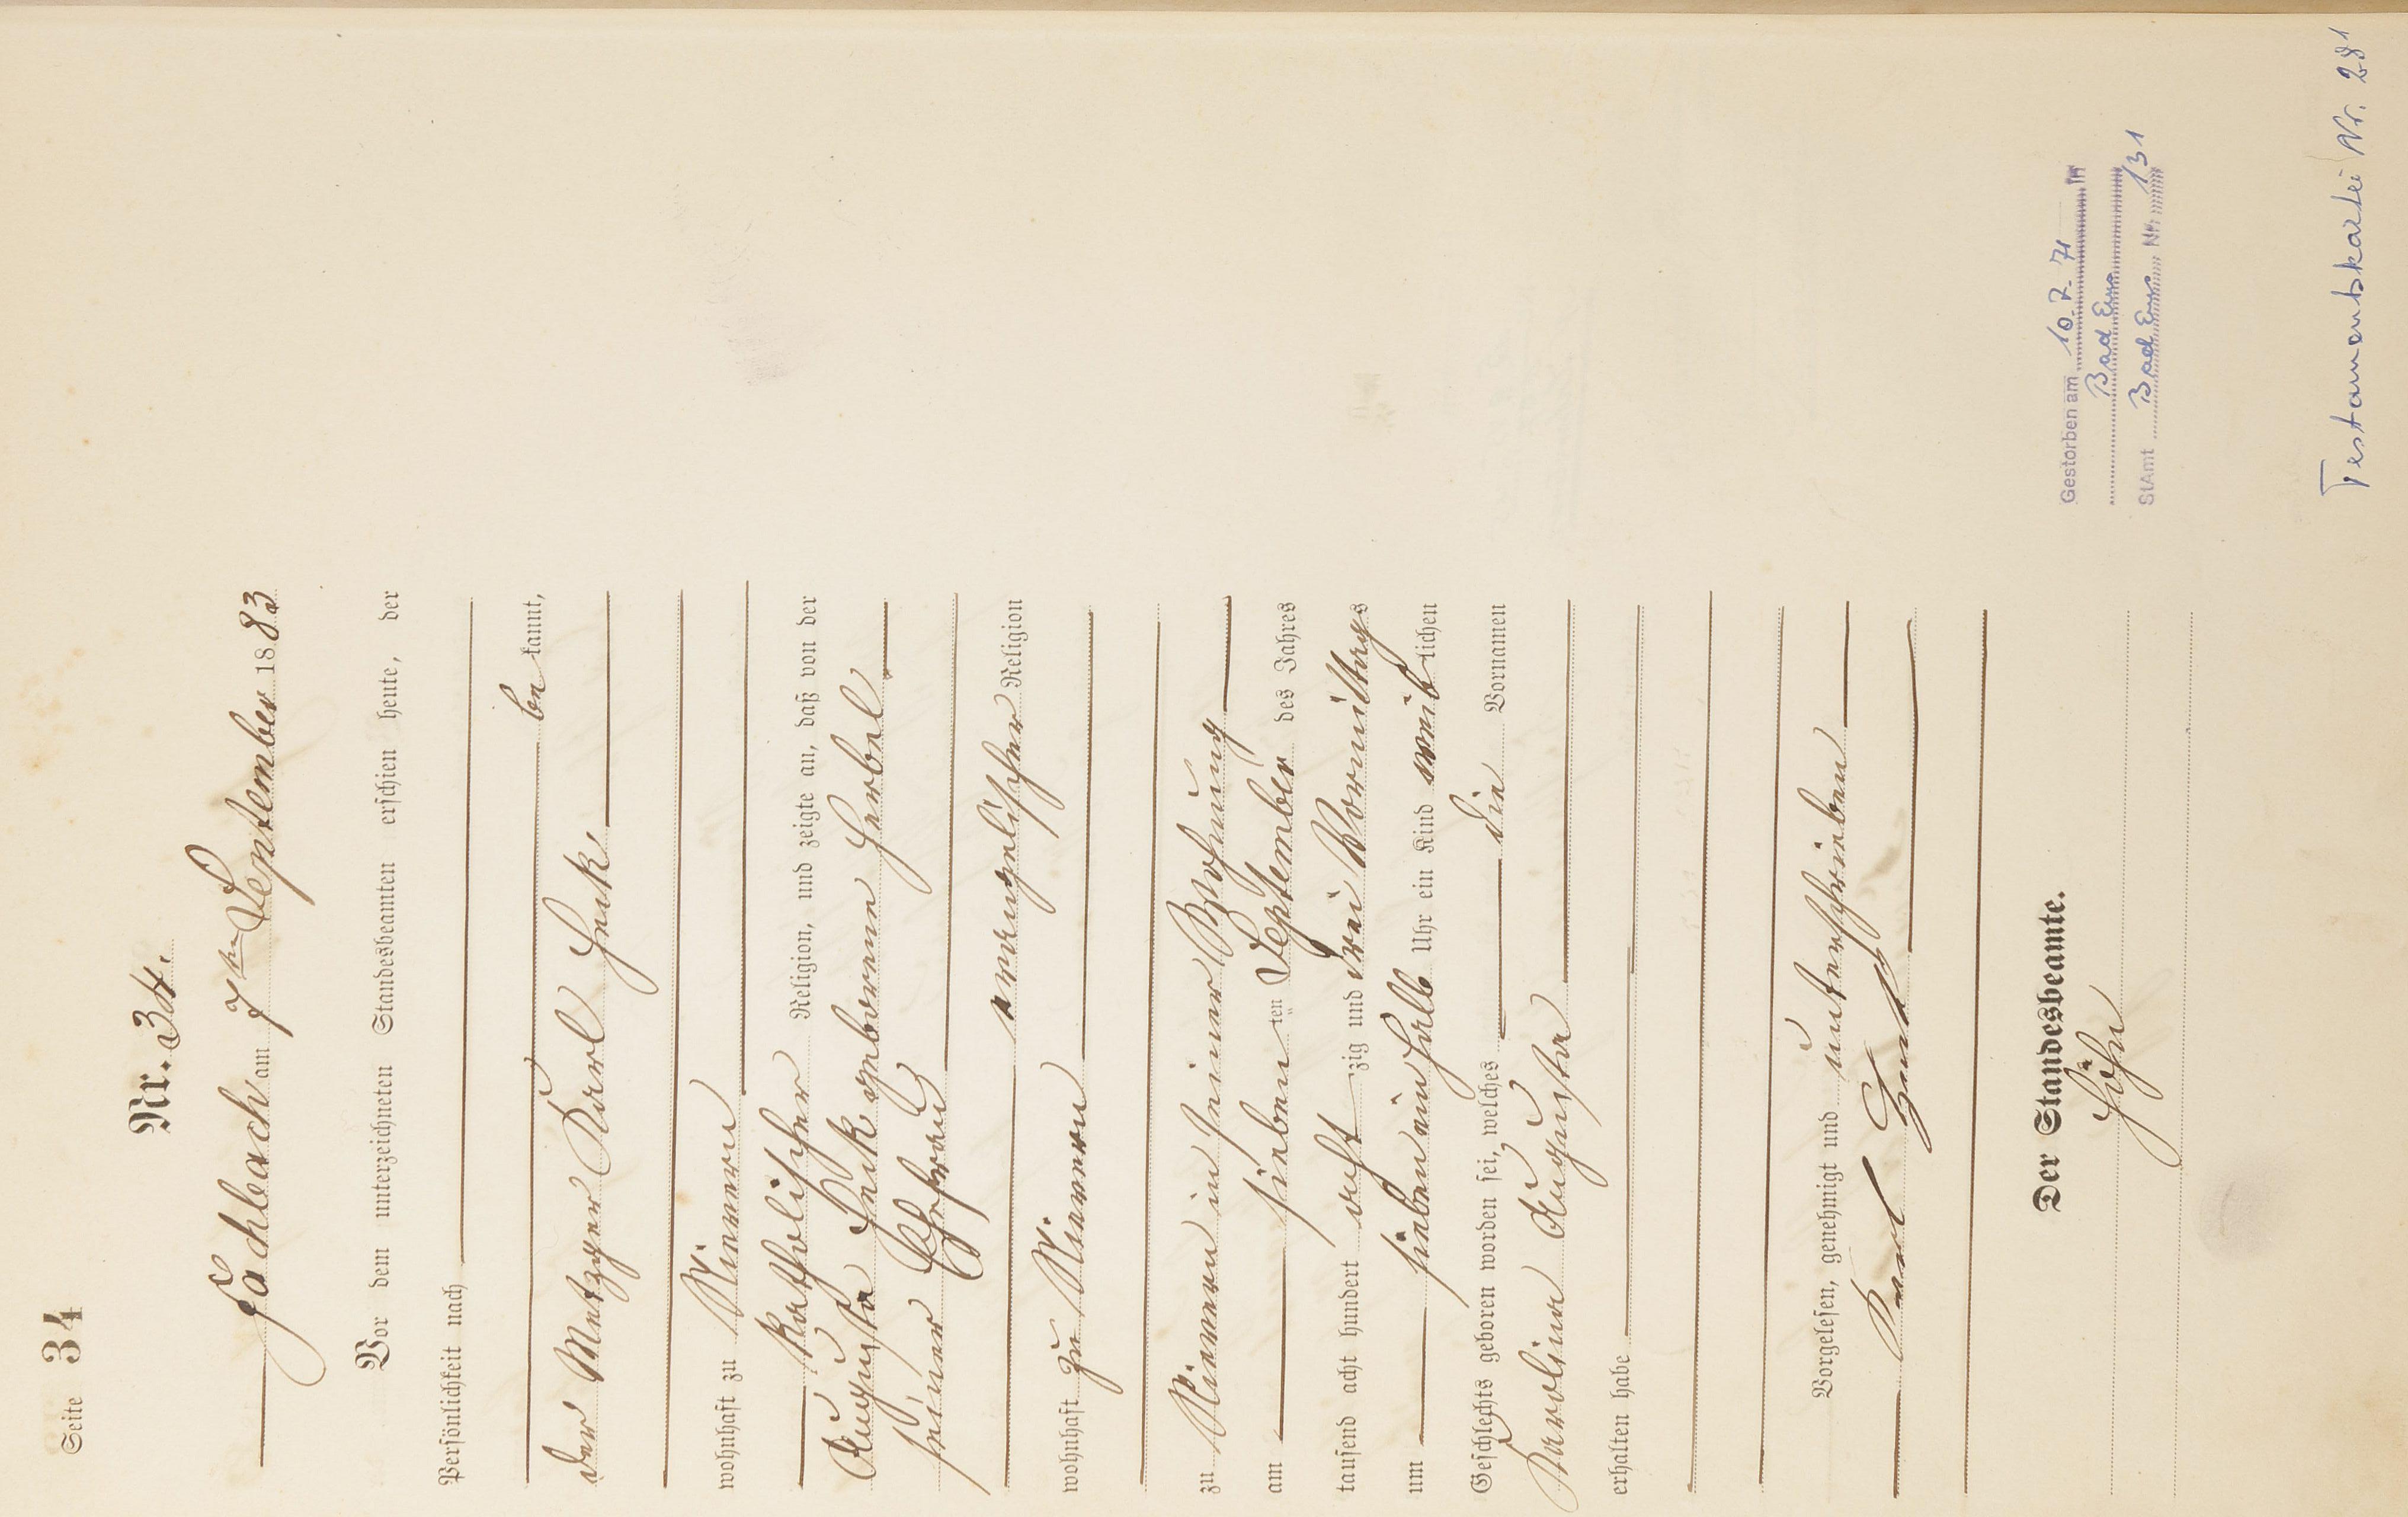 Seite 34
Nr. 34.
Fachbach am 7ten September 1883
Vor dem unterzeichneten Standesbeamten erschien heute, der
Persönlichkeit nach
bekannt,
der Metzger Karl Henk,
wohnhaft zu Nievern
katholischer Religion, und zeigte an, daß von der
Augusta Henk geborene Herbel
seiner Ehefrau
evangelischer Religion
wohnhaft zu Nievern
zu Nievern in seiner Wohnung
am sieben ten September des Jahres
tausend acht hundert acht zig und drei Vormittags
um sieben ein halb Uhr ein Kind weiblichen
Geschlechts geboren worden sei, welches die Vornamen
Karolina Augusta
erhalten habe
Vorgelesen, genehmigt und unterschrieben
Karl Henk
Der Standesbeamte.
Gestorben am 10.7.71 in
Bad Ems
StAmt Bad Ems Nr. 131
Testamentskartei Nr. 281